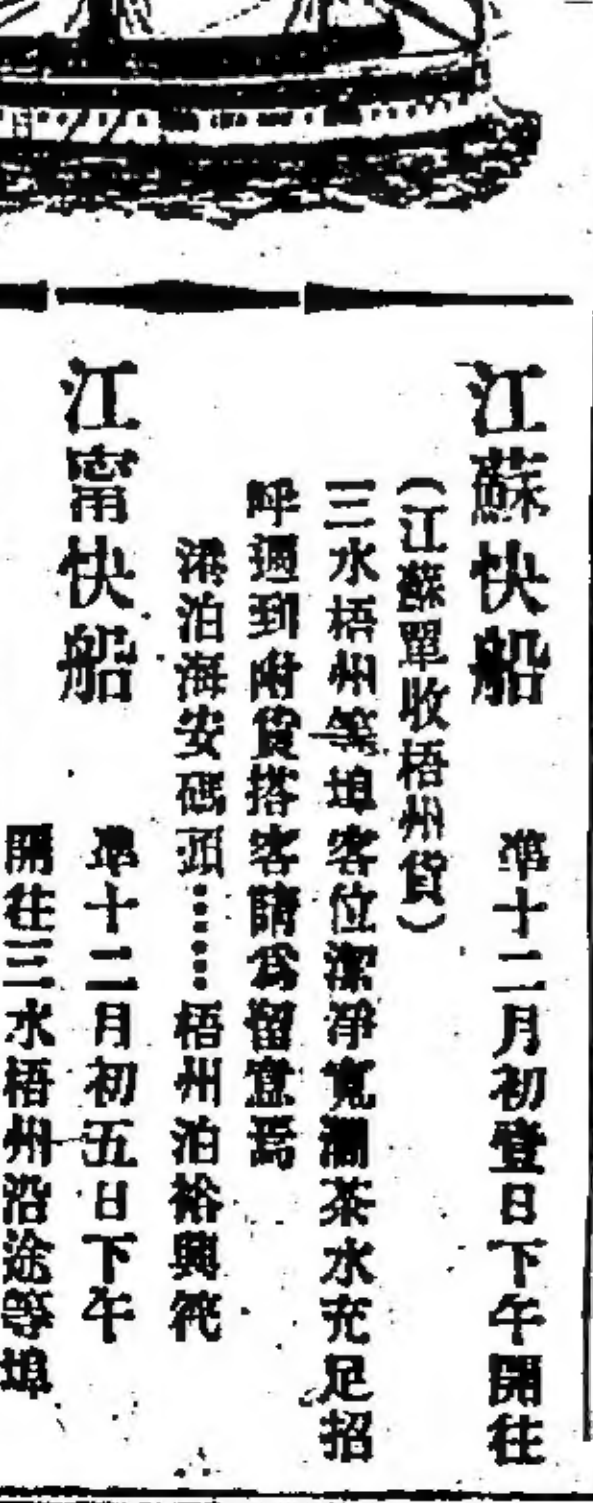 江蘇快船 準十二月初壹日下午開往
(江蘇單收梧州貨)
三水梧州等埠客位潔淨寬濶茶水充足招
呼週到附貨搭客請爲留意焉
港泊海安碼頭……梧州泊裕興筏
江甯快船 準十二月初五日下午
開往三水梧州沿途等埠